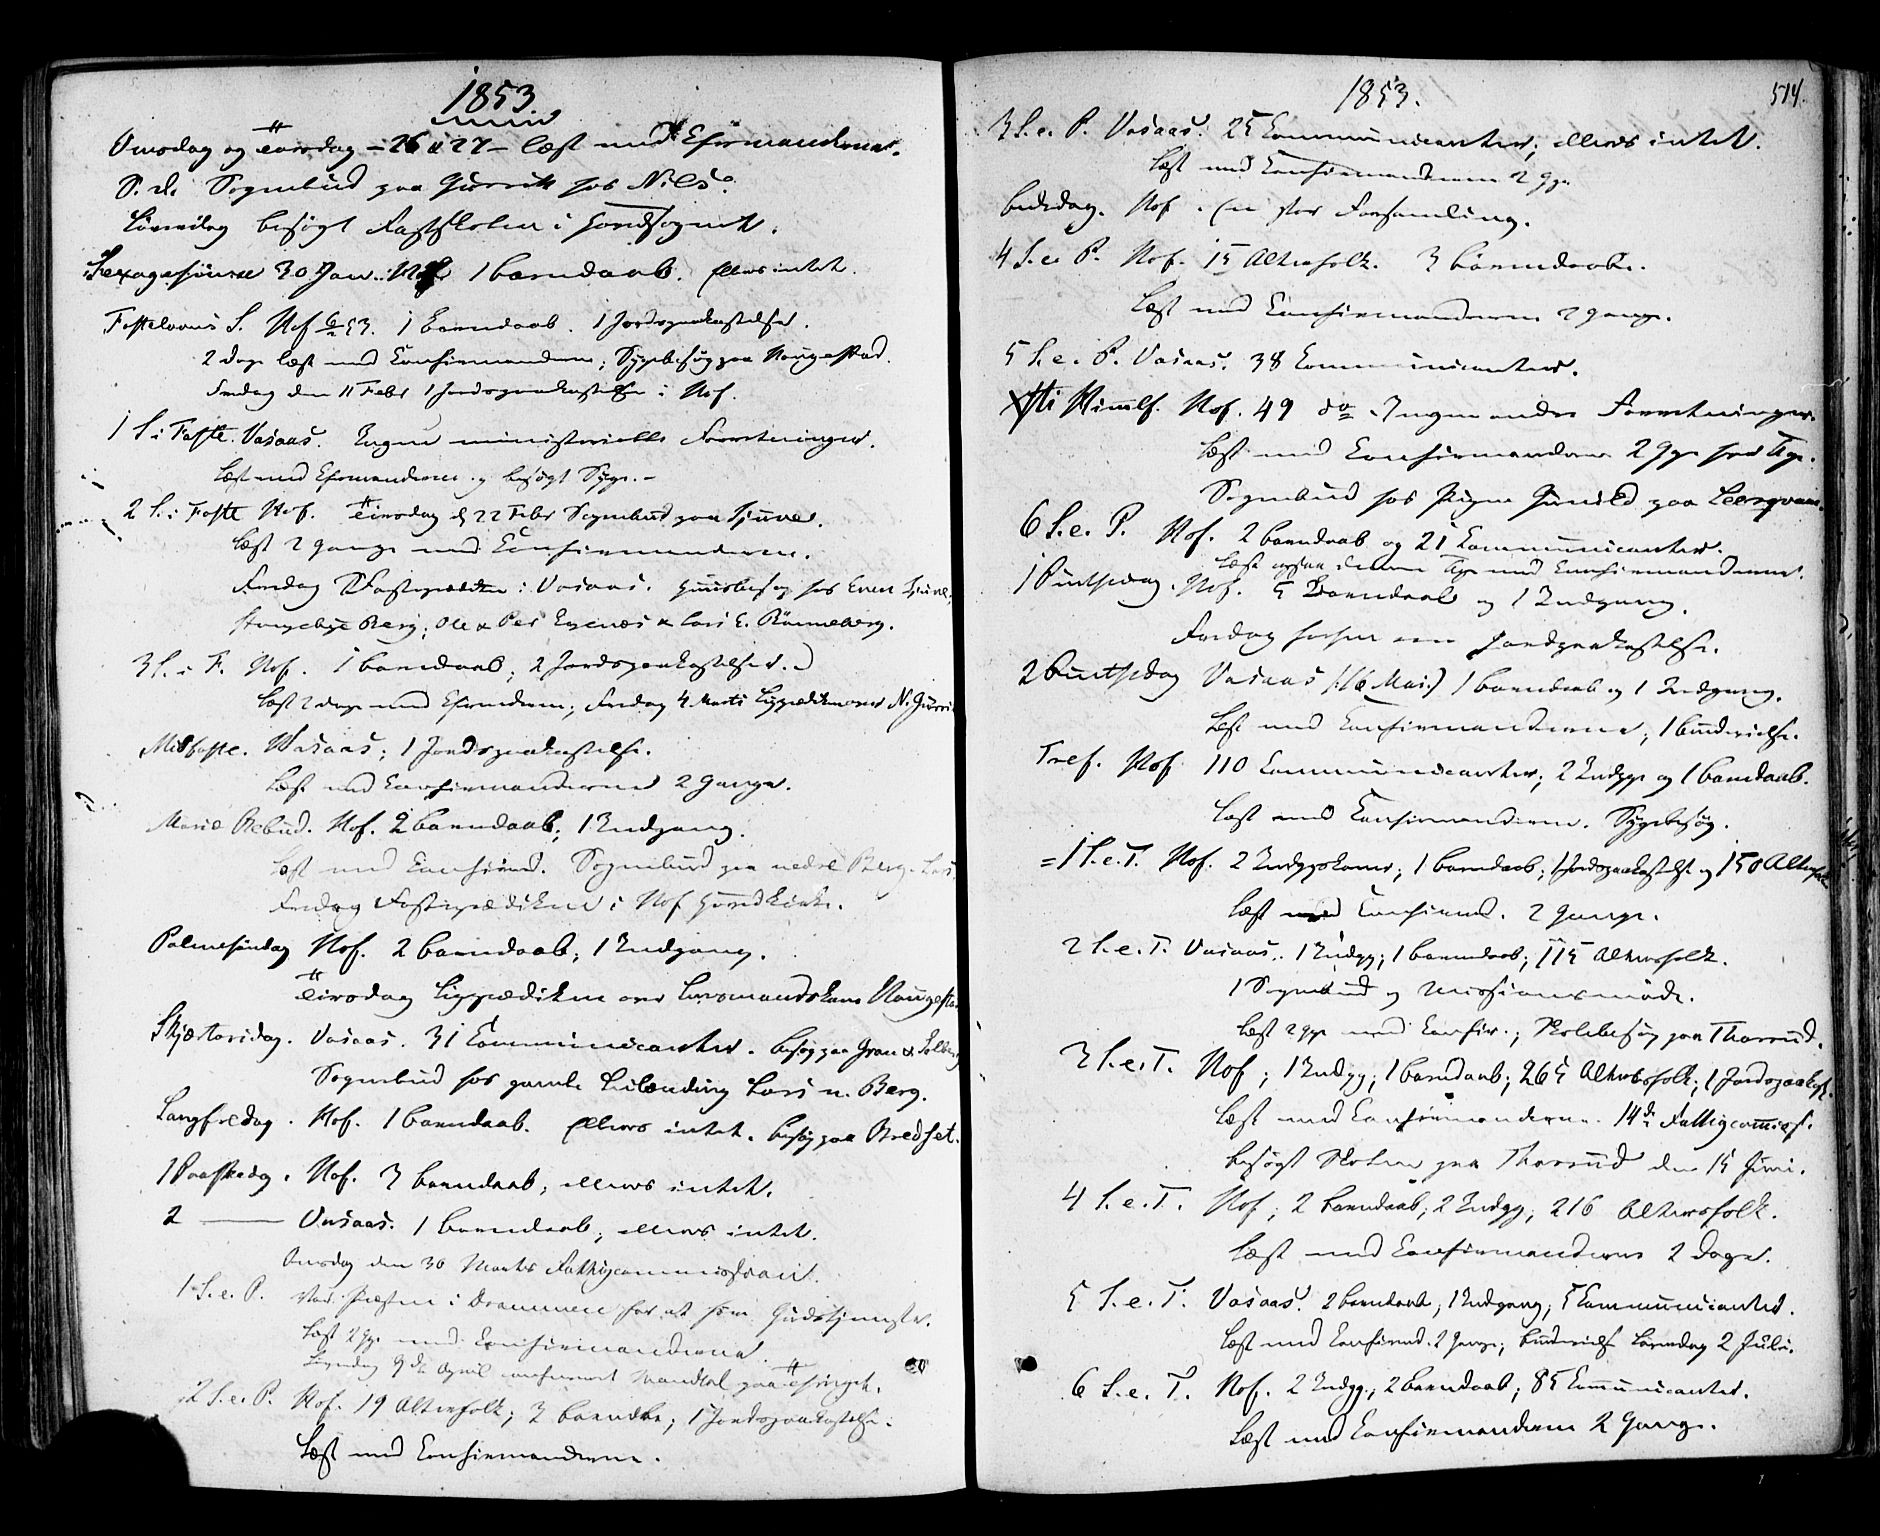 1853
Onsdag og Torsdag – 26 & 27 – læst med Cfirmanderne.
S. d. Sognebud paa hos Nils.
Løverdag besøgt Fastskolen i Hovedsognet.
Sexagesimæ 30 Jan. Hof 1 barndaab. Ellers intet.
Fastelavns S. Hof 6/2 53. 1 Barndaab. 1 Jordspaakastelse.
2 Dage læst med Confirmanderne; Sygebesøg paa Haugestad.
Fredag den 11 Febr 1 Jordspaakastelse i Hof.
1 S. i Faste. Vasaas. Ingen ministerielle Forretninger.
Læst med Cfirmanderne og besøgt Syge. –
2 S. i Faste Hof. Tirsdag d 22 Febr Sognebud paa
Læst 2 Gange med Confirmanderne.
Fredag Fasteprædiken i Vasaas. Huusbesøg hos Even
Berg, Ole & Per & Lars E. Rønneberg.
3 S. i F. Hof. 1 barndaab; 2 Jordspaakastelser.
Læst 2 dage med Cfirmderne; Fredag 4 Marts Ligprædiken over N.
Midfaste. Vasaas; 1 Jordspaakastelse.
Læst med Confirmanderne 2 Gange.
Mariæ Bebud. Hof. 2 barndaab; 1 Indgang.
Læst med Confirmd. Sognebud paa nedre Berg.
Fredag Fasteprædiken i Hof Hovedkirke.
Palmesøndag Hof. 2 barndaab; 1 Indgang.
Tirsdag Ligprædiken over
Skjærtorsdag. Vasaas. 31 Communicanter. besøg paa Gran &
Sognebud hos gamle Lars n. Berg.
Langfredag. Hof. 1 barndaab. Ellers intet. besøg paa Bredset.
1 Paaskedg. Hof. 3 barndaab; ellers intet.
2 —— Vasaas. 1 barndaab; ellers intet.
Onsdag den 30 Marts Fattigcommission.
1 S. e. P. Var Præsten i Drammen for at høre Gudstjeneste.
Læst 2 Gge med Confirmanderne.
9 d. April Mandtal paa Thinget.
2 S. e. P. Hof. 19 Altersfolk; 3 barndbe; 1 Jordspaakastelse.
Læst med Confirmanderne.
1853.
514.
3 S. e. P. Vasaas. 25 Communicanter; ellers intet.
Læst med Confirmanderne 2 Gge.
Bededag. Hof. En stor Forsamling.
4 S. e. P. Hof. 15 Altersfolk. 3 barndaabe.
Læst med Confirmanderne 2 Gange.
5 S. e. P. Vasaas. 38 Communicanter.
Xsti Himlf. Hof. 49 do Ingen andre Forretninger.
Læst med Confirmanderne 2 Gge
Sognebud hos Pigen Gunild paa
6 S. e. P. Hof. 2 barndaab og 21 Communicanter.
Læst ogsaa denne Uge med Confirmanderne.
1 Pintsedag. Hof. 5 Barndaab og 1 Indgang.
Fredag forhen een Jordpaakastelse.
2 Pintsedag Vasaas (: 16 Mai :) 1 barndaab og 1 Indgang.
Læst med Confirmanderne; 1
Tref. Hof 110 Communicanter; 2 Indgge og 1 barndaab.
Læst med Confirmanderne. Sygebesøg.
= 1 S. e. T. Hof. 2 Indgskoner; 1 barndaab; 1 Jordspaakastelse og 150 Altersfolk
Læst med Confirmd. 2 Gange.
2 S. e. T. Vasaas. 1 Indgg; 1 barndaab; 115 Altersfolk.
1 Sognebud og Missionsmøde.
Læst 2 Gge med Confir.; Skolebesøg paa Thorrud.
3 S. e. T. Hof; 1 Indgg; 1 barndaab; 265 Altersfolk; 1 Jordspaakst.
Læst med Confirmanderne. 14de Fattigcomiss.
besøgt Skolen paa Thorrud den 15 Juni.
4 S. e. T. Hof; 2 barndaab; 2 Indgg; 216 Altersfolk.
Læst med Confirmanderne 2 Dage.
5 S. e. T. Vasaas. 2 barndaab; 1 Indgang; 5 Communicanter.
Læst med Confirmd. 2 Gange; Løverdag 2 Juli.
6 S. e. T. Hof. 2 Indgg; 2 barndaab; 85 Communicanter.
Læst med Confirmanderne 2 Gange.